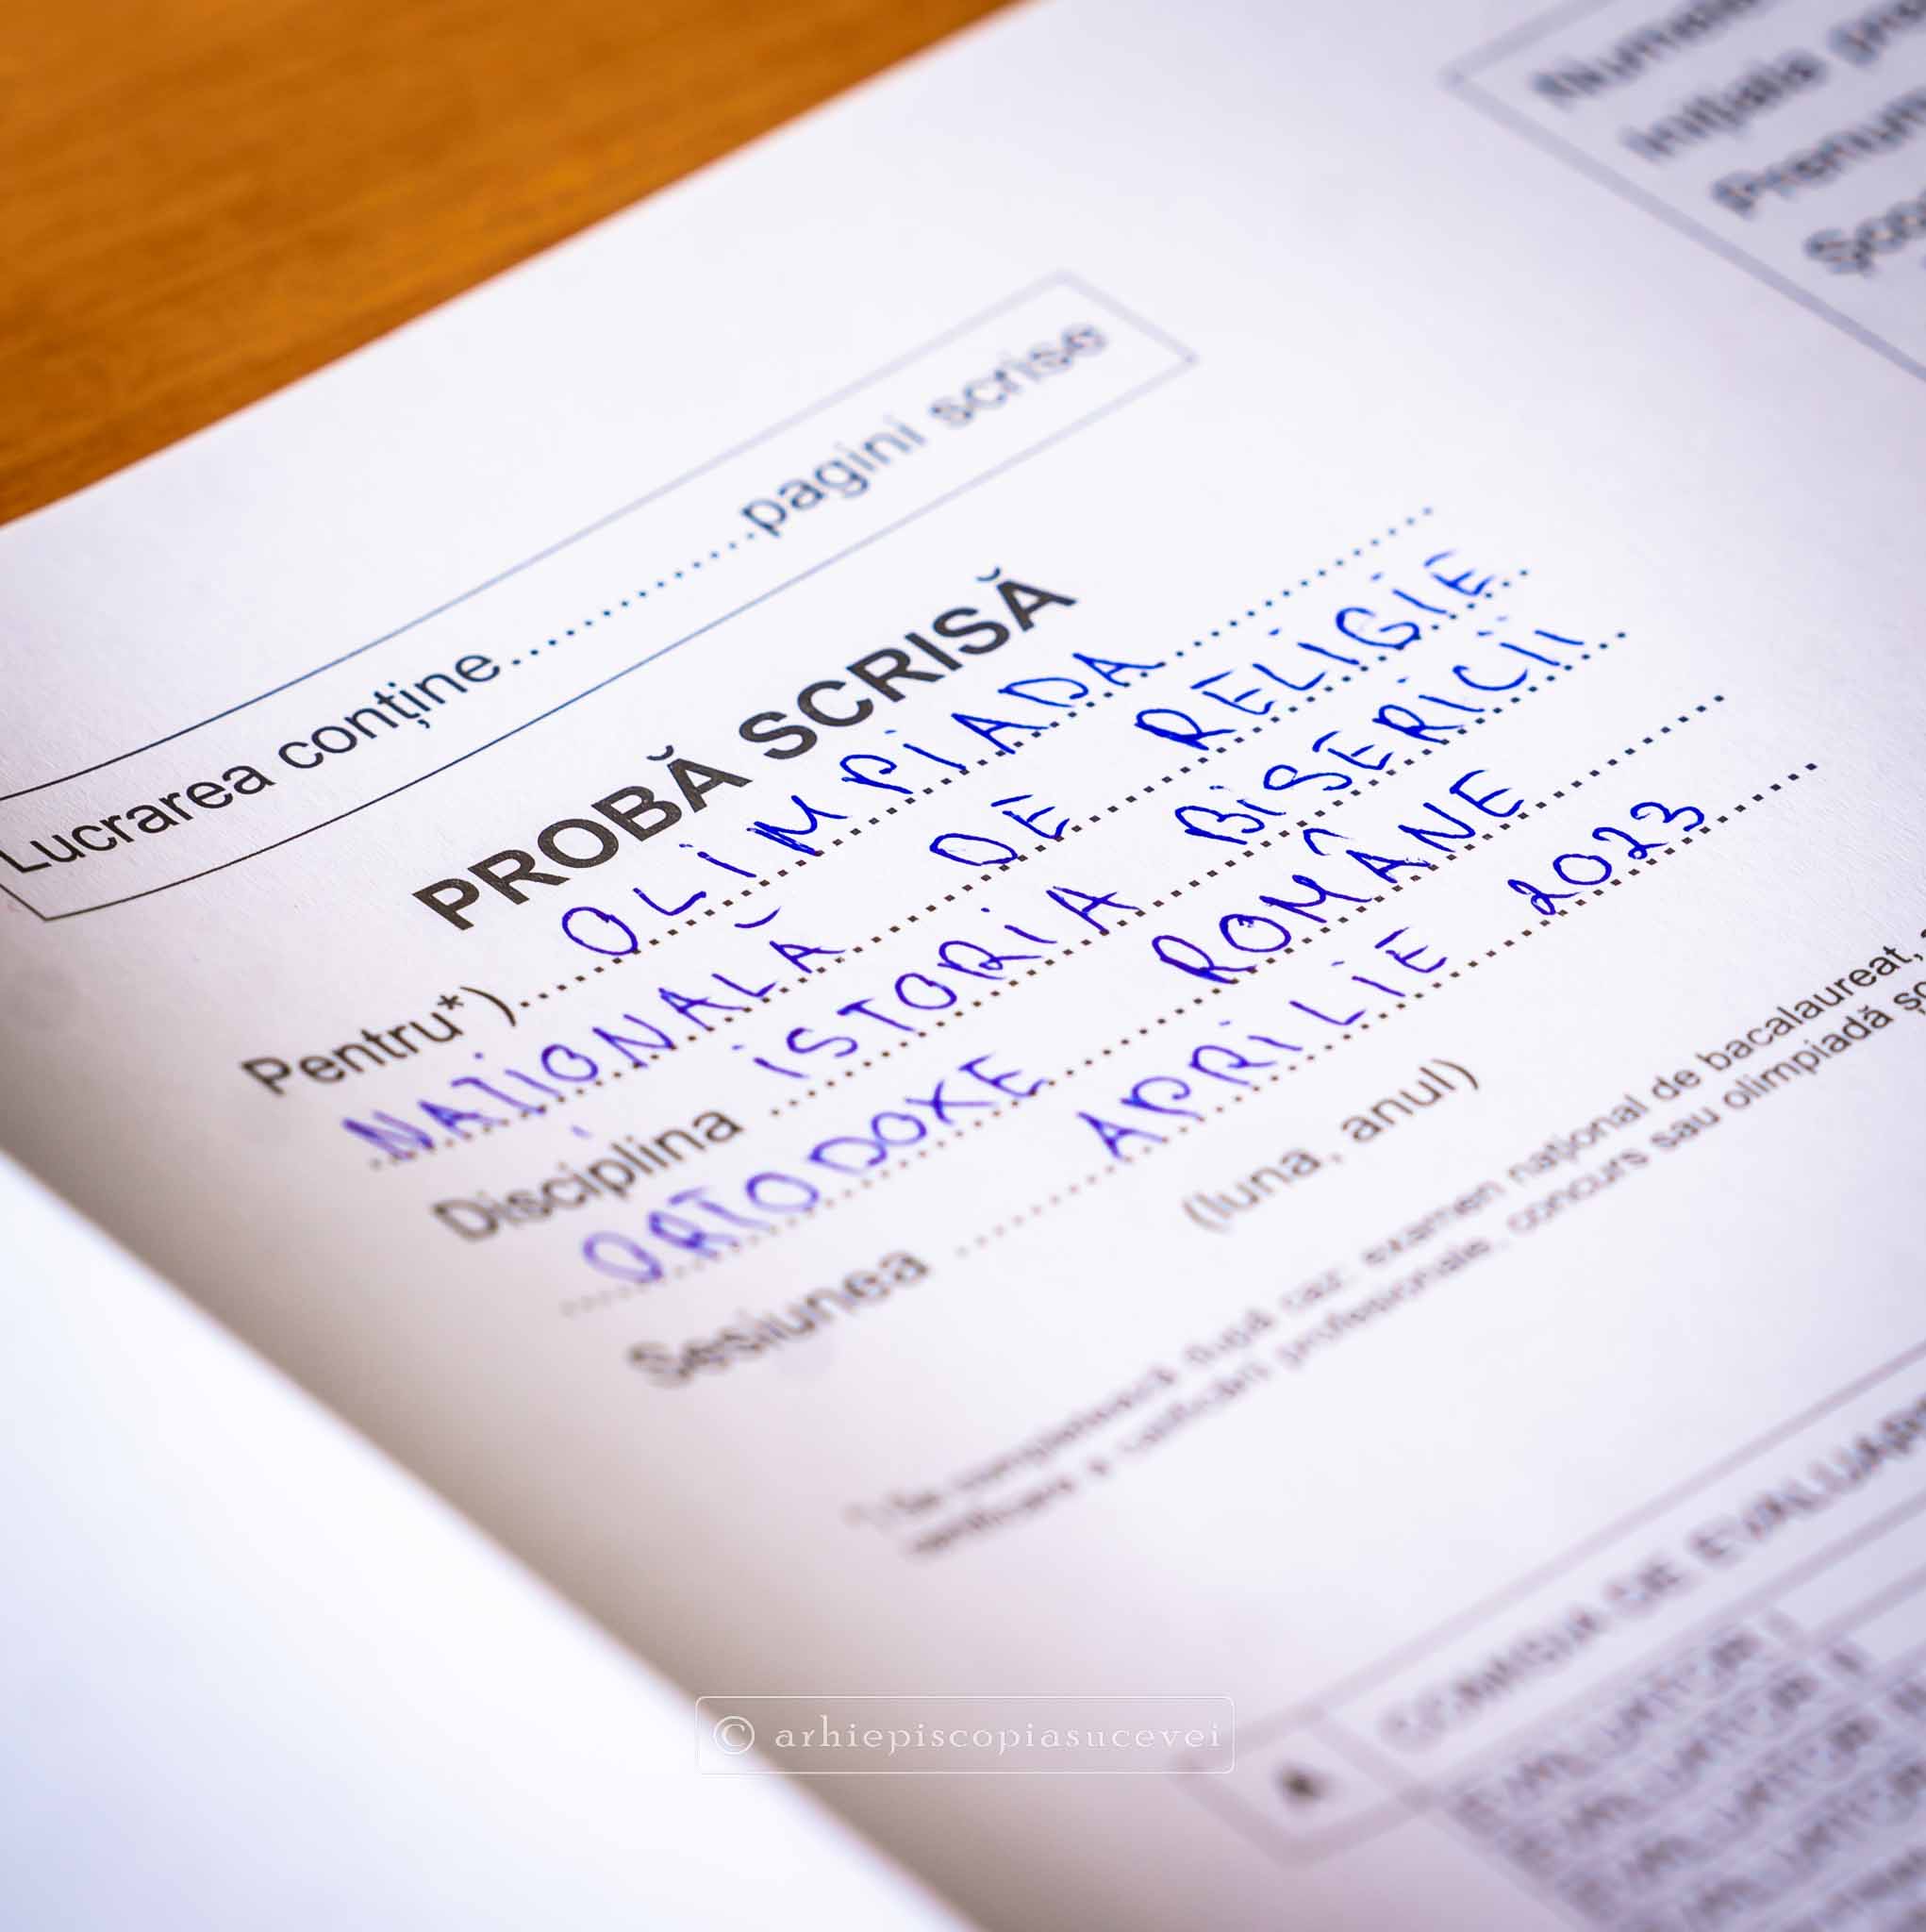 Numele
inițiala
Prenum
Lucrarea conține....................pagini scrise
PROBĂ SCRISĂ
Pentru*) OLIMPIADA
NAȚIONALĂ DE RELIGIE
Disciplina ISTORIA BISERICII
ORTODOXE ROMÂNE
Sesiunea APRILIE 2023
(luna, anul)
*) Se completează după caz: examen național de bacalaureat,
certificare a calificării profesionale, concurs sau olimpiadă
COMISIA DE EVALUARE
A
EVALUATOR I
© arhiepiscopiasucevei